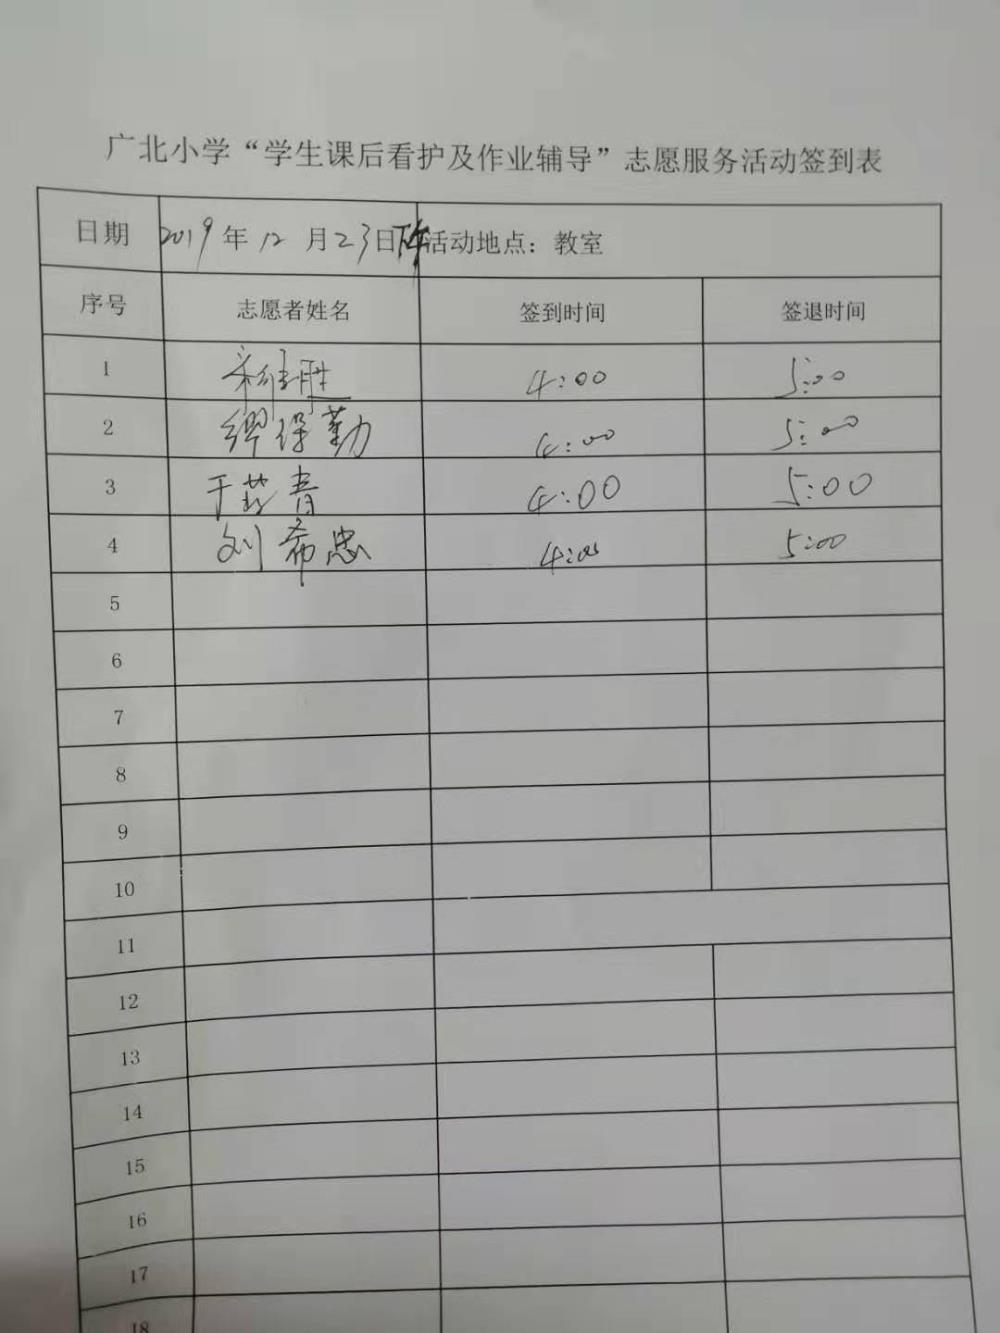 广北小学“学生课后看护及作业辅导”志愿服务活动签到表
日期 2019年12月23日下午 活动地点：教室
序号 志愿者姓名 签到时间 签退时间
1 胜 4:00 5:00
2 缪保勤 4:00 5:00
3 于 青 4:00 5:00
4 刘希忠 4:00 5:00
5
6
7
8
9
10
11
12
13
14
15
16
17
18